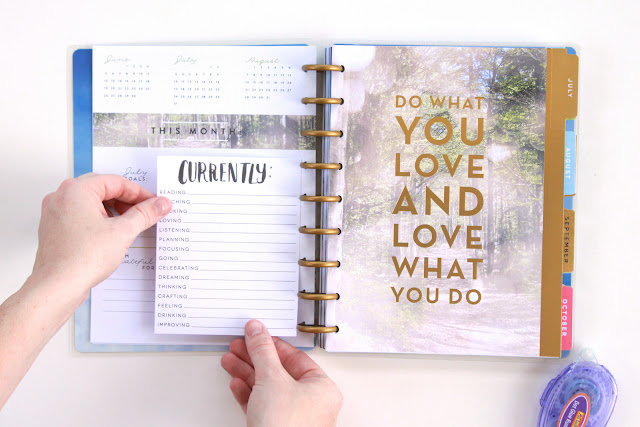 June
July
August
THIS MONTH
July
GOALS:
CURRENTLY:
READING
LOVING
LISTENING
PLANNING
FOCUSING
GOING
CELEBRATING
DREAMING
THINKING
CRAFTING
FEELING
DRINKING
IMPROVING
DO WHAT
YOU
LOVE
AND
LOVE
WHAT
YOU DO
JULY
AUGUST
SEPTEMBER
OCTOBER